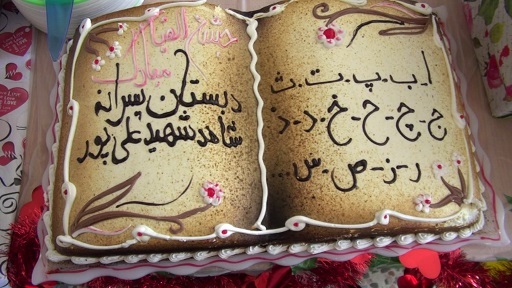 ا - ب - پ - ت - ث
ج - چ - ح - خ - د - ذ
ر - ز - ص - س ...
جشن الفبا
مبارک
دبستان پسرانه
شاهد شهید علی پور